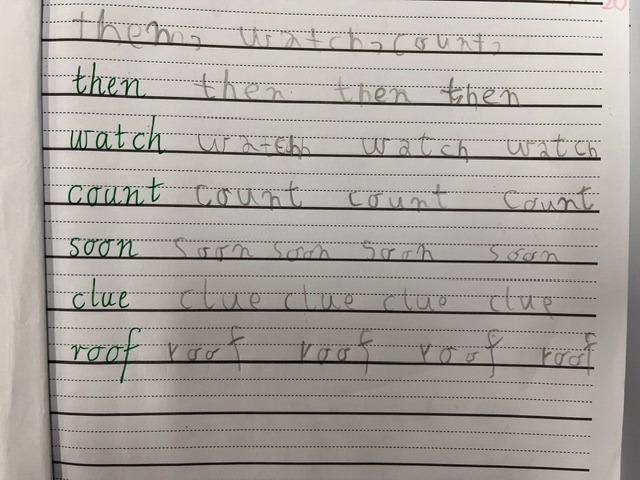 then, watch, count,
then then then then
watch watch watch watch
count count count count
soon soon soon soon soon
clue clue clue clue clue
roof roof roof roof roof
20